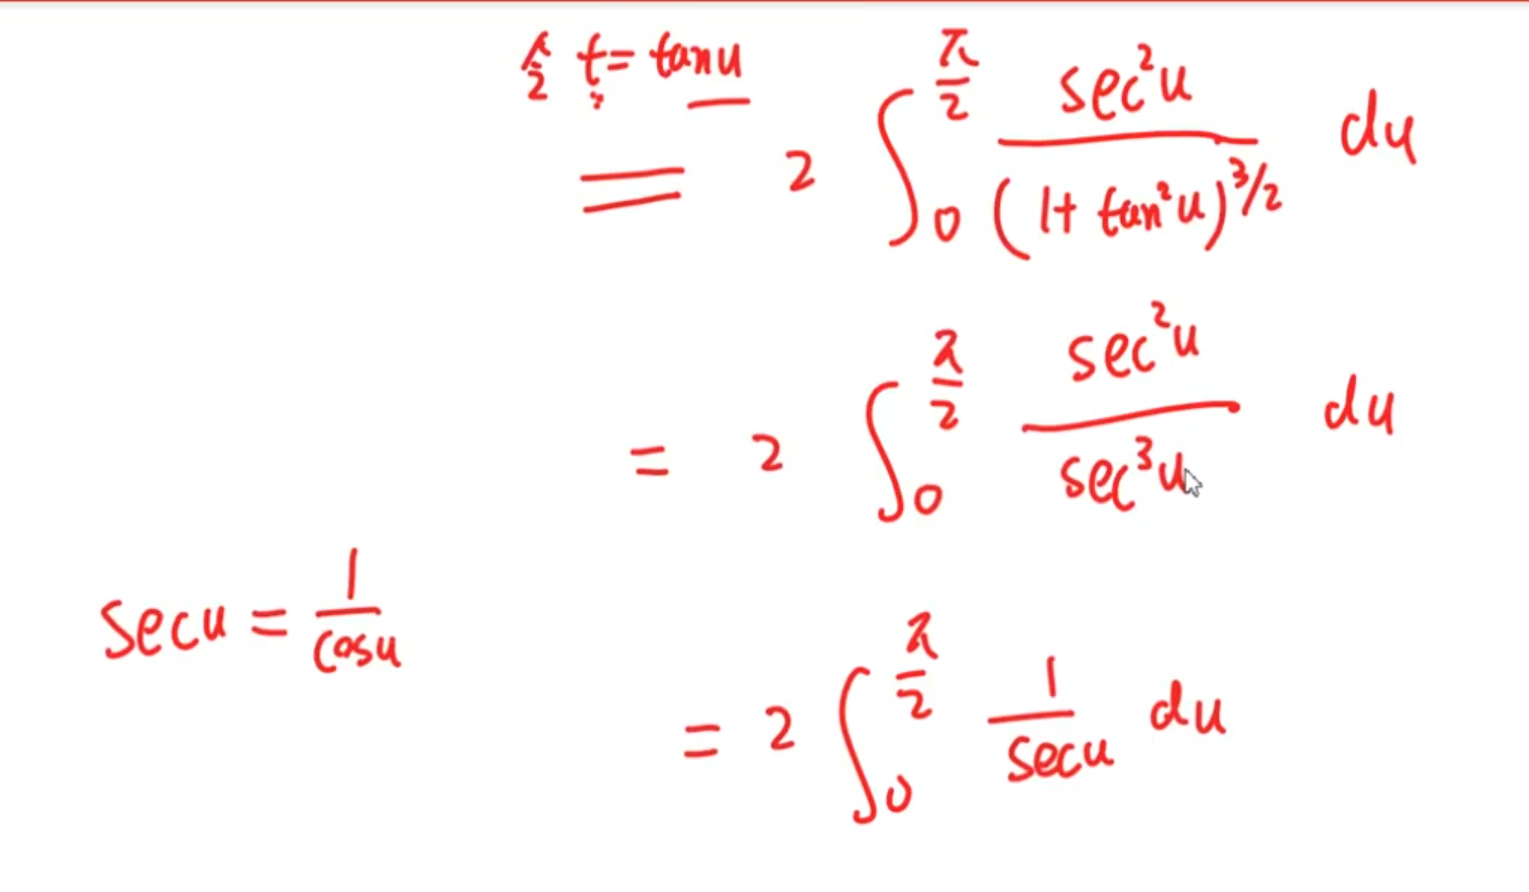 令 t = tan u
= 2 ∫₀^{π/2} sec²u / (1 + tan²u)^{3/2} du
= 2 ∫₀^{π/2} sec²u / sec³u du
sec u = 1 / cos u
= 2 ∫₀^{π/2} 1 / sec u du